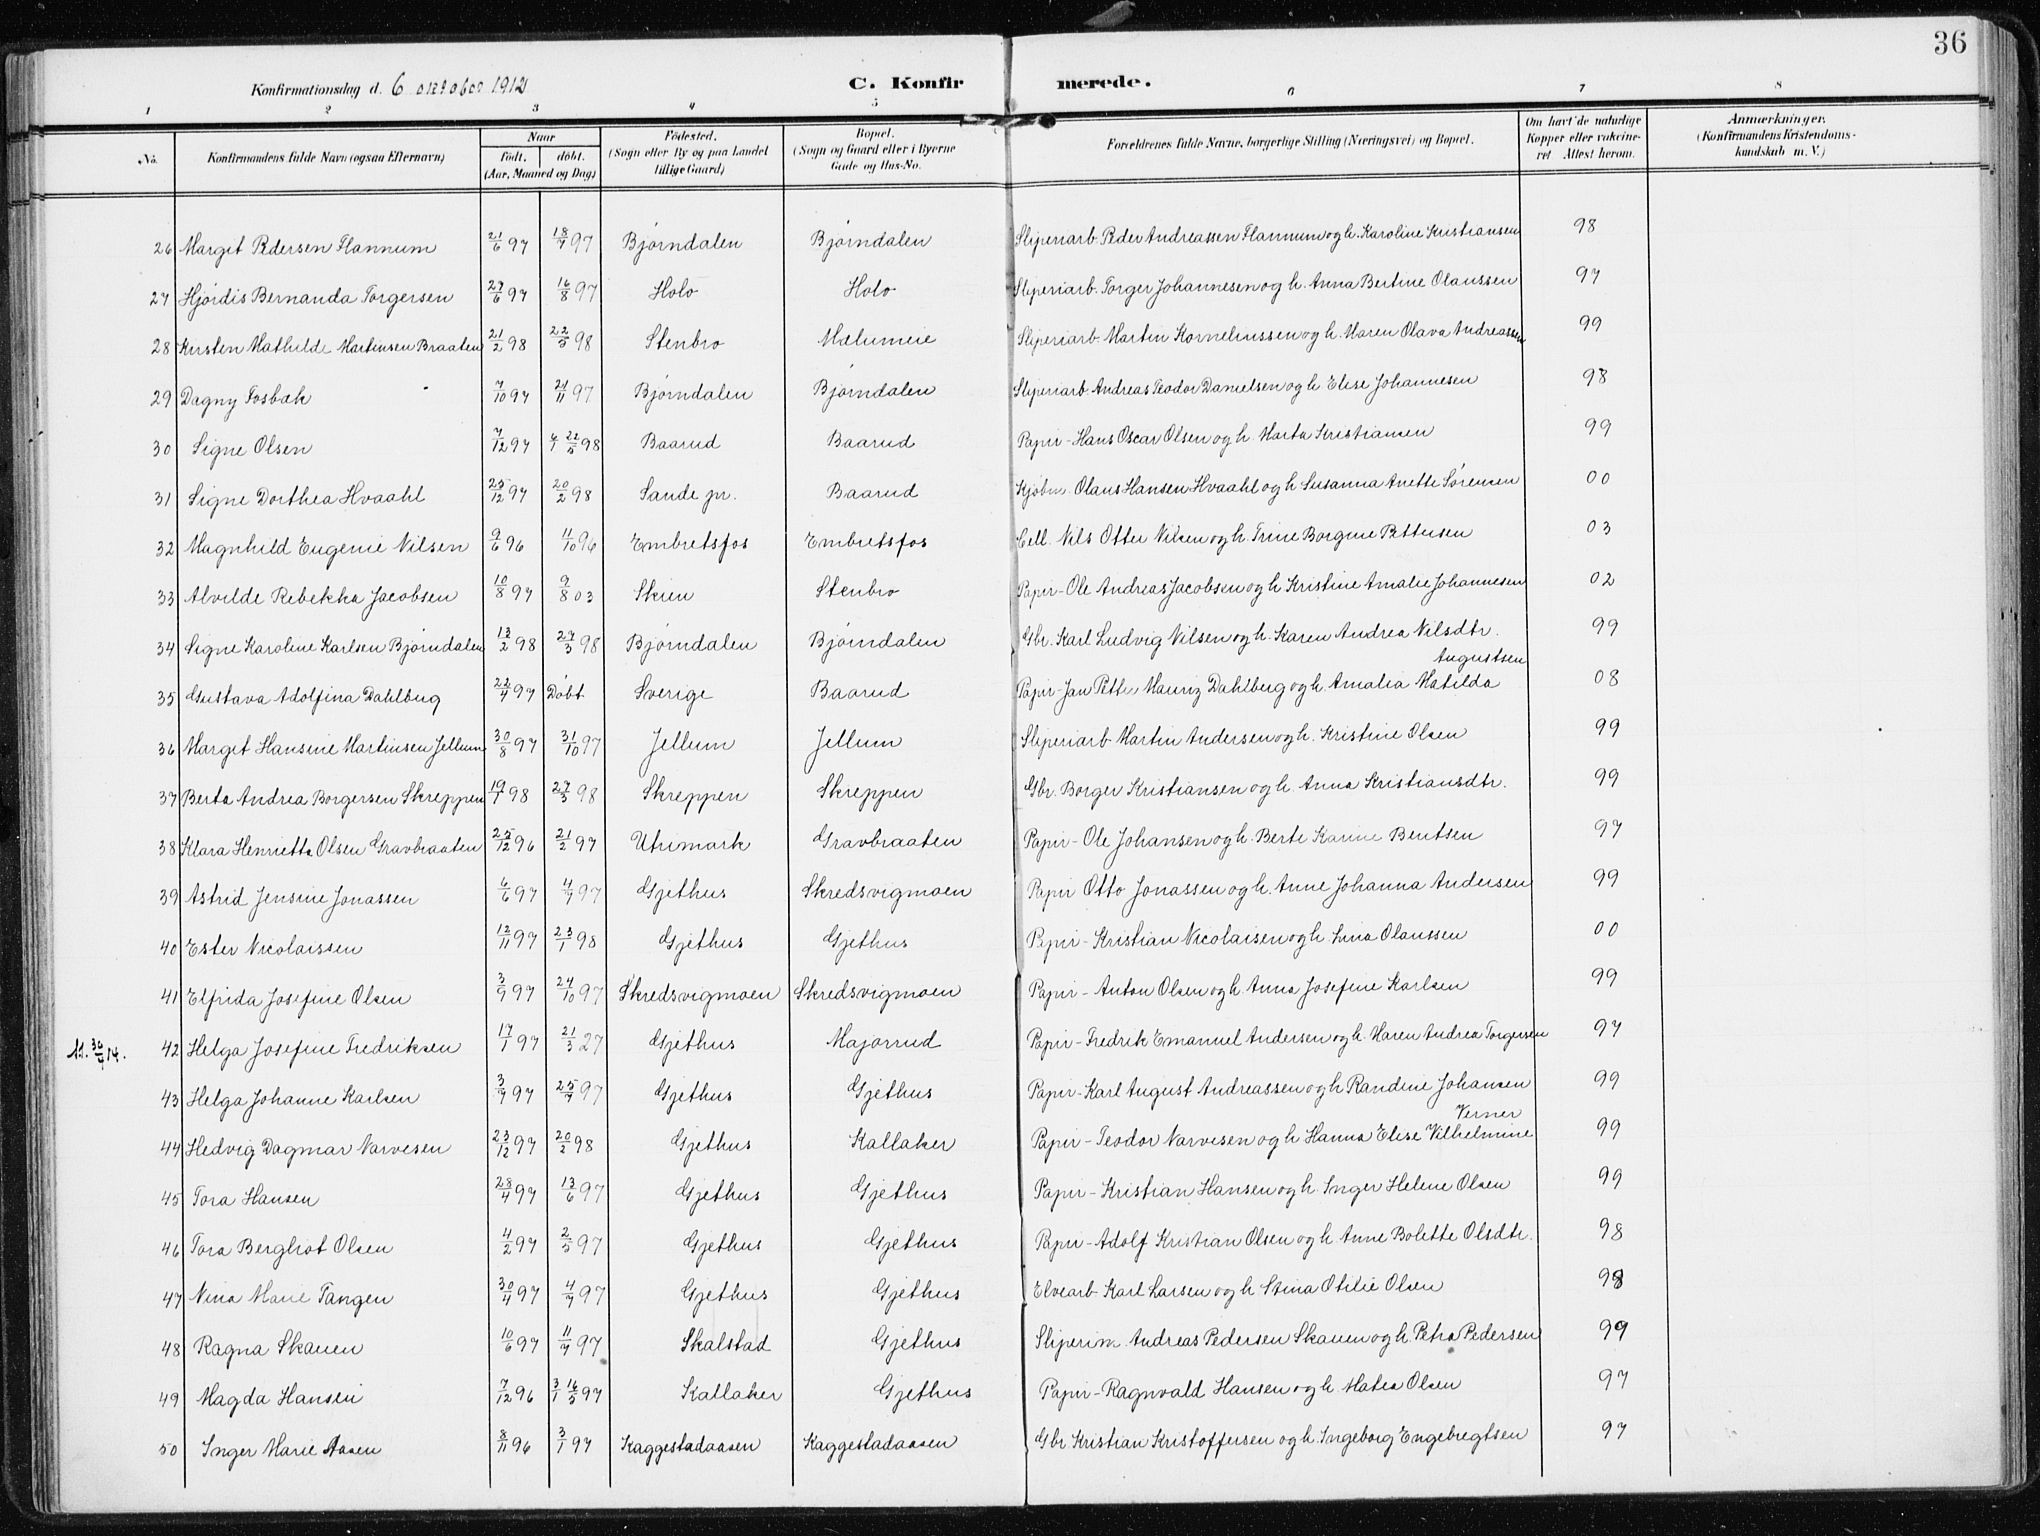 36
Konfirmationsdag d. 6 oktober 1912
C. Konfirmerede.
1 2 3 4 5 6 7 8
No. Konfirmandens fulde Navn (ogsaa Efternavn) Naar født. døbt. (Aar, Maaned og Dag) Fødested. (Sogn eller By og paa Landet tillige Gaard) Bopæl. (Sogn og Gaard eller i Byerne Gade og Hus-No. Forældrenes fulde Navne, borgerlige Stilling (Næringsvei) og Bopæl. Om havt de naturlige Kopper eller vakcineret Attest herom. Anmærkninger. (Konfirmandens Kristendomskundskab m. V.)
26 Margit Pedersen Flannum 21/6 97 18/7 97 Bjørndalen Bjørndalen Sliperiarb. Peder Andreassen Flannum og h. Karoline Kristiansen 98
27 Hjørdis Bernanda Torgersen 27/6 97 16/8 97 Holo Holo Sliperiarb. Torger Johannesen og h. Anna Bertine Olaussen 97
28 Kirsten Mathilde Martinsen Braaten 21/2 98 22/5 98 Stenbro Mælumeie Sliperiarb. Martin Korneliussen og h. Maren Olava Andreassen 99
29 Dagny Fosbæk 7/10 97 21/11 97 Bjørndalen Bjørndalen Sliperiarb. Andreas Teodor Danielsen og h Elise Johannesen 98
30 Signe Olsen 7/12 97 6/1 22/5 98 Baarud Baarud Papir- Hans Oscar Olsen og h. Marta Kristiansen 99
31 Signe Dorthea Hvaahl 25/12 97 20/2 98 Sande pr. Baarud Kjøbm. Olaus Hansen Hvaahl og h Susanna Anette Sørensen 00
32 Magnhild Eugenie Nilsen 9/6 96 11/10 96 Embretsfos Embretsfos Cell. Nils Otter Nilsen og h. Trine Borgine Pettersen 03
33 Alvilde Rebekka Jacobsen 10/8 97 9/8 03 Skien Stenbro Papir- Ole Andreas Jacobsen og h Kristine Amalie Johannesen 02
34 Signe Karoline Karlsen Bjørndalen 13/2 98 27/3 98 Bjørndalen Bjørndalen Gbr. Karl Ludvig Nilsen og h. Karen Andrea Nilsdtr. 99
35 Gustava Adolfina Dahlberg 22/4 97 Døbt Sverige Baarud Papir- Jan Petter Mauriz Dahlberg og h. Amalia Matilda Augustsen 08
36 Margit Hansine Martinsen Jellum 30/8 97 31/10 97 Jellum Jellum Sliperiarb Martin Andersen og h. Kristine Olsen 99
37 Berta Andrea Borgersen Skreppen 19/1 98 27/3 98 Skreppen Skreppen Gbr. Borger Kristiansen og h. Anna Kristiansdtr. 99
38 Klara Henriette Olsen Gravbraaten 25/12 96 21/2 97 Utrimark Gravbraaten Papir- Ole Johansen og h. Berte Karine Bentsen 97
39 Astrid Jensine Jonassen 6/6 97 4/7 97 Gjethus Skredsvigmoen Papir Otto Jonassen og h. Anne Johanna Andersen 99
40 Ester Nicolaissen 12/11 97 23/1 98 Gjethus Gjethus Papir- Kristian Nicolaisen og h. Lina Olaussen 00
41 Elfrida Josefine Olsen 3/9 97 24/10 97 Skredsvigmoen Skredsvigmoen Papir- Anton Olsen og h. Anna Josefine Karlsen 99
30/4 14. 42 Helga Josefine Fredriksen 17/1 97 21/3 27 Gjethus Majorrud Papir- Fredrik Emanuel Andersen og h. Maren Andrea Torgersen 97
43 Helga Johanne Karlsen 3/7 97 25/7 97 Gjethus Gjethus Papir- Karl August Andreassen og h Randine Johansen 99
44 Hedvig Dagmar Narvesen 23/12 97 20/2 98 Gjethus Kallaker Papir- Teodor Narvesen og h Hanna Elise Vilhelmine Verner 99
45 Tora Hansen 28/4 97 13/6 97 Gjethus Gjethus Papir- Kristian Hansen og h. Inger Helene Olsen 99
46 Tora Bergliot Olsen 4/2 97 2/5 97 Gjethus Gjethus Papir- Adolf Kristian Olsen og h Anne Bolette Olsdtr. 98
47 Nina Marie Tangen 30/4 97 4/7 97 Gjethus Gjethus Elvearb Karl Larsen og h Stina Otilie Olsen 98
48 Ragna Skauen 10/6 97 11/7 97 Skalstad Gjethus Sliperim. Andreas Pedersen Skauen og h. Petra Pedersen 99
49 Magda Hansen 7/12 96 3/1 16/5 97 Kallaker Gjethus Papir- Ragnvald Hansen og h Matea Olsen 97
50 Inger Marie Aasen 8/11 96 3/1 97 Kaggestadaasen Kaggestadaasen Gbr Kristian Kristoffersen og h. Ingeborg Engebregtsen 97